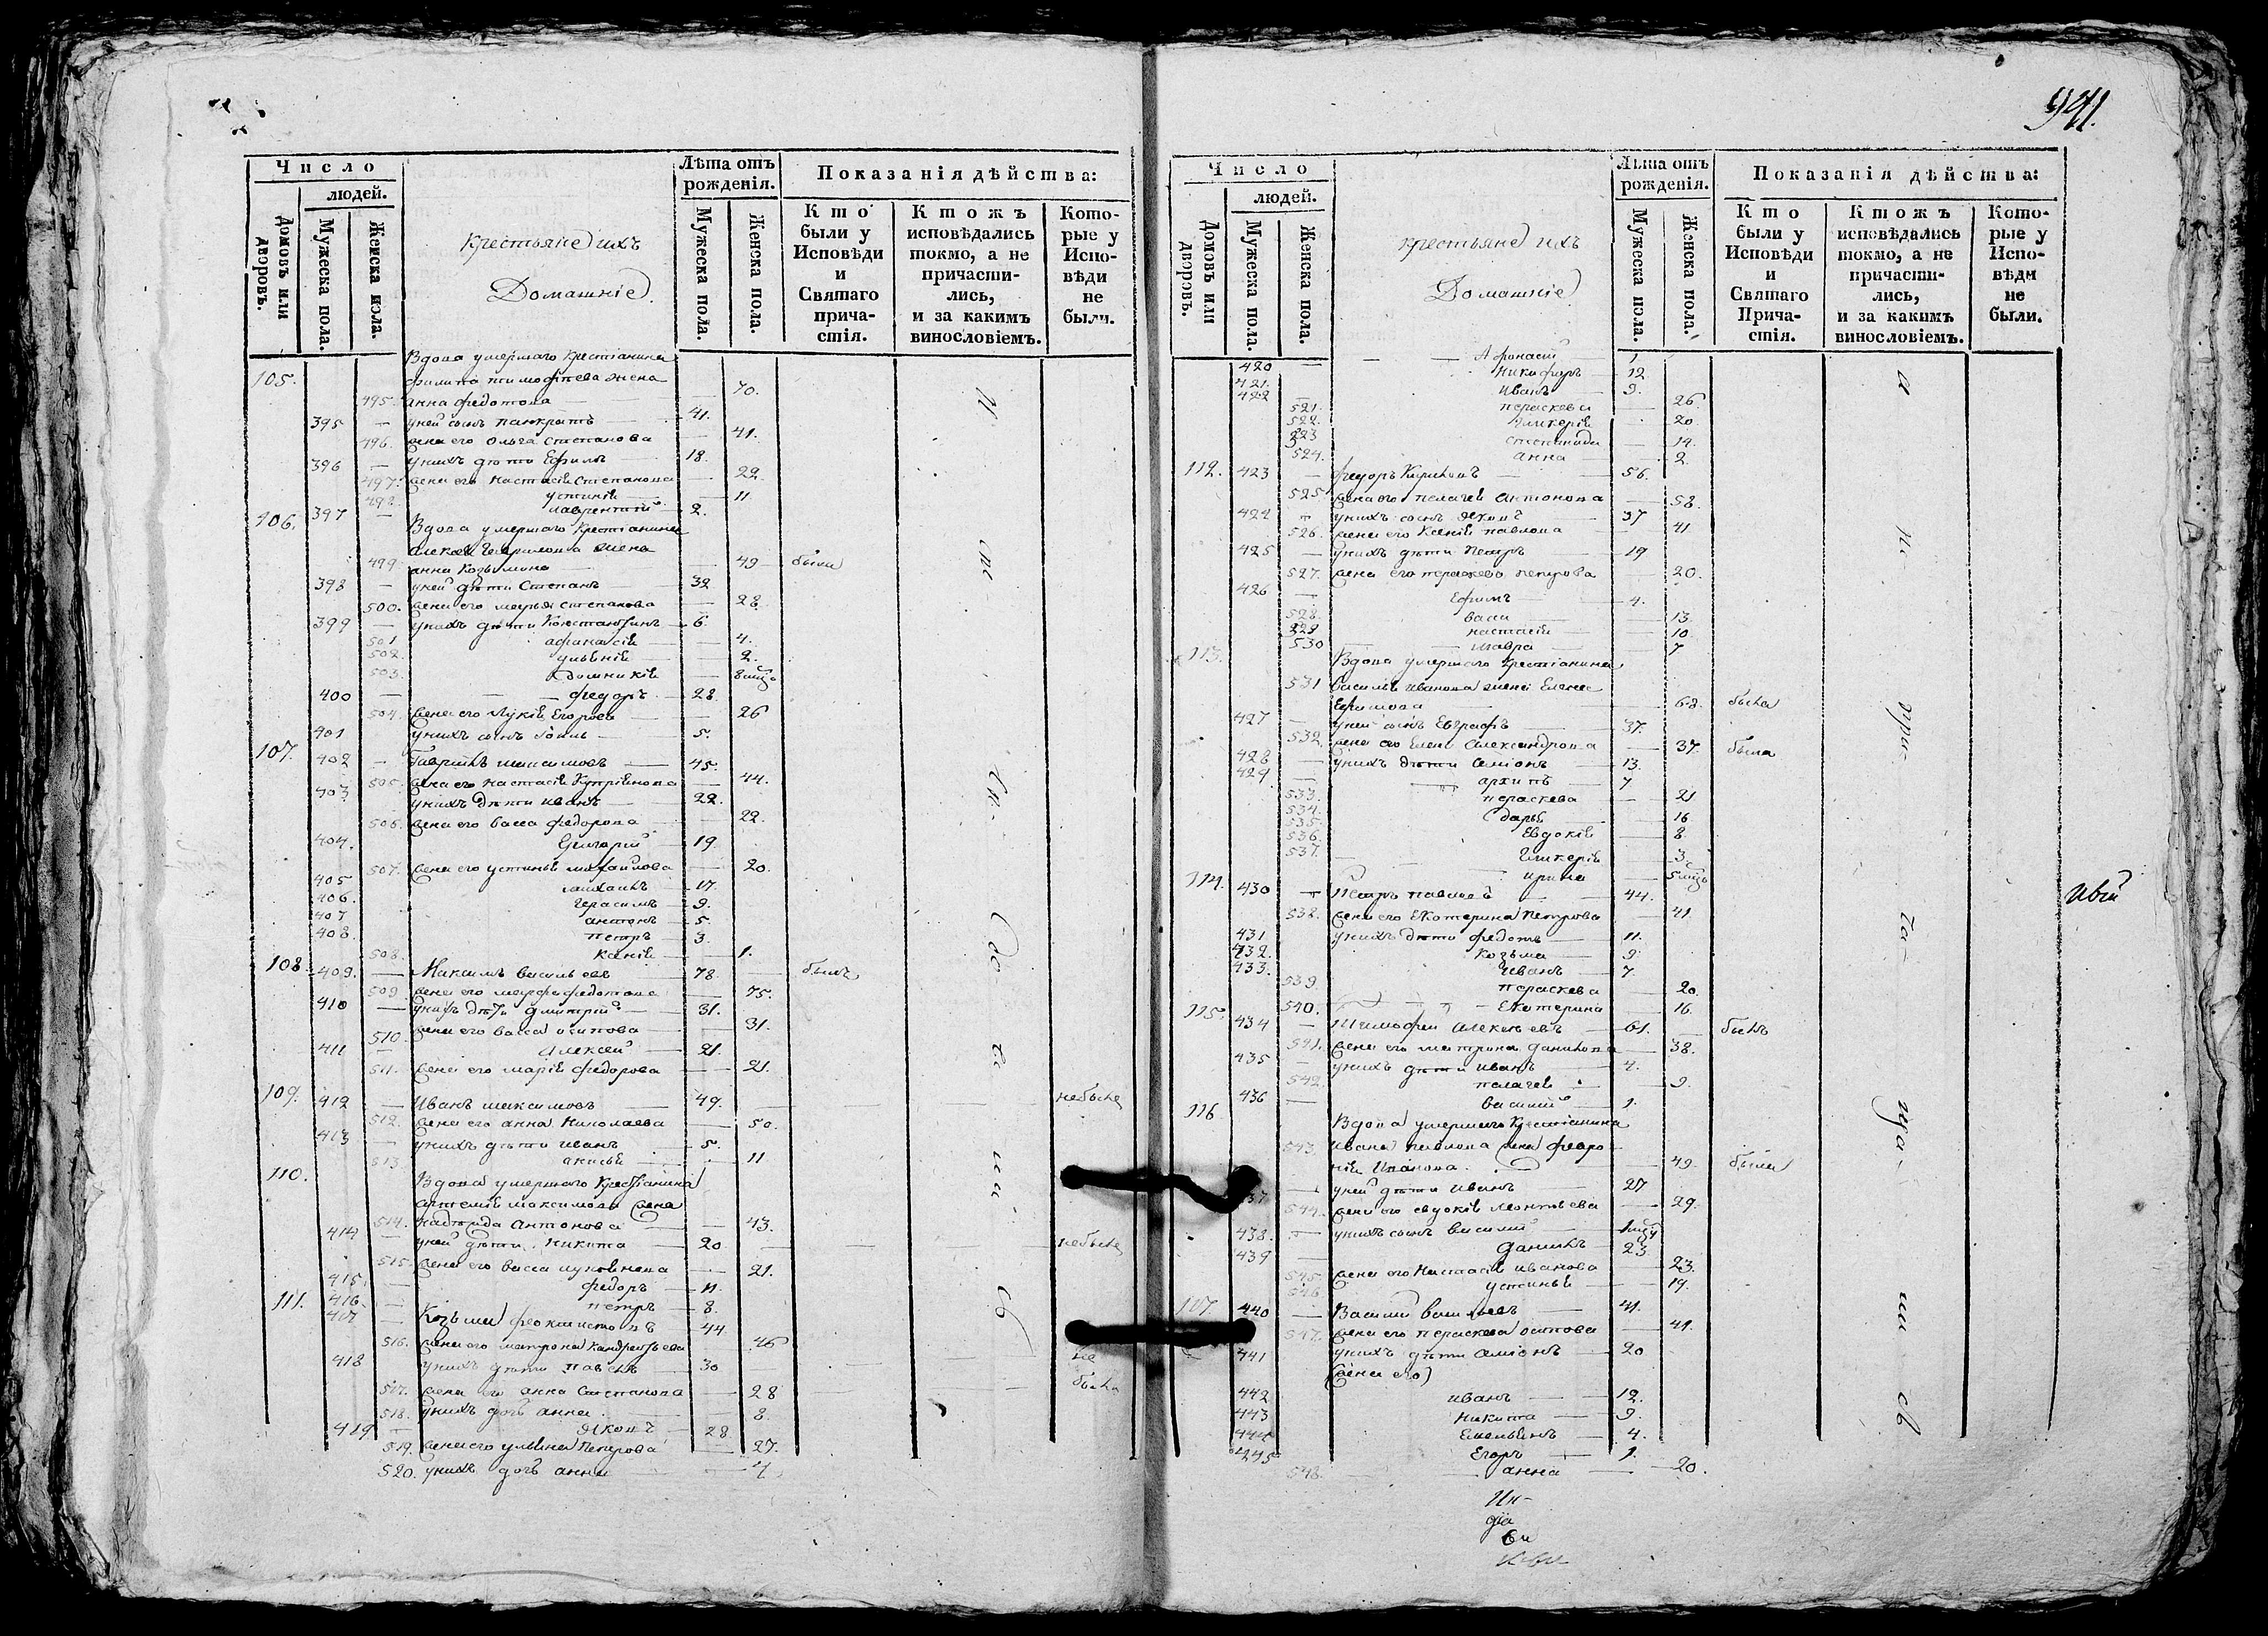 941.
Число
людей.
Домовъ или дворовъ.
Мужеска пола.
Женска пола.
крестьяне ихъ
Домашніе.
Лѣта отъ рожденія.
Мужеска пола.
Женска пола.
Показанія дѣйства:
Кто были у Исповѣди и Святаго причастія.
Ктожъ исповѣдались токмо, а не причастились, и за какимъ винословіемъ.
Которые у Исповѣди не были.
105. Вдова умершаго крестіанина
филипа тимофѣева жена
495. анна федотова — 70.
395 — уней сынъ панкратъ — 41.
496. жена его ольга степанова — 41.
396 — унихъ дѣти Ефимъ — 18.
497. жена его настасія степанова — 22.
498. устинія — 11
397 — лаврентій — 2.
106. Вдова умершаго крестіанина
алексея гаврилова жена
499. анна козьмина — 49 была
398 — уней дѣти степанъ — 32
500. жена его марья степанова — 28
399 — унихъ дѣти константинъ — 6.
501 афанасія — 4.
502. ульянія — 2.
503. домникія —
400 — федоръ — 28
504. жена его лукія Егорова — 26
401 унихъ сынъ — 5.
107. 402 — Гаврилъ максимовъ — 45.
505. жена его настасія — 44.
403 унихъ дѣти иванъ — 22.
506. жена его васса федорова — 22.
404. Григорій — 19.
507. жена его устинья михайлова — 20.
405 михаилъ — 17.
406. герасимъ — 9.
407 антонъ — 5.
408. петръ — 3.
508. ксенія — 1.
108. 409. — Максимъ васильевъ — 78. былъ
509 жена его марфа федотова — 75.
410 — унихъ дѣти дмитрій — 31.
510. жена его васса осипова — 31.
411 — Алексей — 21.
511. жена его марія федорова — 21.
109. 412 — Иванъ максимовъ — 49. небыли
512. жена его анна Николаева — 50.
413 — унихъ дѣти иванъ — 5.
513 анисья — 11
110. Вдова умершаго крестіанина
артемія максимова жена
514. надежда антонова — 43.
414 — уней дѣти никита — 20 — небыли
515. жена его васса — 21.
415. — федоръ — 11.
416. — петръ — 8.
111. 417 — Козьма феоктистовъ 44
516. жена его матрона кандратьева 46
418 унихъ дѣти павелъ — 30 не
517. жена его анна степанова — 28 была
518. унихъ дочь анна — 8.
419 — яковъ — 28
519. жена его ульяна петрова — 27.
520. унихъ дочь анна — 4
Число
людей.
Домовъ или дворовъ.
Мужеска пола.
Женска пола.
крестьяне ихъ
Домашніе.
Лѣта отъ рожденія.
Мужеска пола.
Женска пола.
Показанія дѣйства:
Кто были у Исповѣди и Святаго Причастія.
Ктожъ исповѣдались токмо, а не причастились, и за какимъ винословіемъ.
Которые у Исповѣди не были.
420 — Афонасій — 1.
421. никифоръ — 12
422 — иванъ — 9.
521. пераскева — 26.
522. Гликерія — 20
523 степанида — 14.
524. анна — 2.
112. 423 — федоръ Кириловъ — 56.
525 жена его пелагея антонова — 58.
424 — унихъ сынъ яковъ — 37
526. жена его ксенія павлова — 41
425 — унихъ дѣти петръ — 19
527. жена его пераскева петрова — 20.
426 — Ефимъ — 4.
528. васа — 13.
529 настасія — 10.
530 — мавра — 7
113. Вдова умершаго крестіанина
531 василія иванова жена Елена
Ефимова — 62. была
427 — уней сынъ Евграфъ — 37.
532. жена его Елена александрова — 37. была
428 — унихъ дѣти симіонъ — 13.
429 — архипъ — 7
533. пераскева — 21
534. дарья — 16
535. Евдокія 8.
536. Гликерія — 3.
537. ирина —
114. 430 — Петръ павловъ — 44.
538. жена его Екатерина петрова — 41.
431 унихъ дѣти федотъ — 11.
432. козьма — 9
433. иванъ — 7.
539 пераскева 20.
540. — Екатерина — 16.
115. 434 — Тимофей алексѣевъ — 61. былъ
541. жена его матрона данилова — 38.
435 — унихъ дѣти иванъ — 4.
542 пелагея — 9.
436 — василій — 1.
116 Вдова умершаго крестіанина
543. ивана павлова жена февро-
нія иванова. — 49. была
437 — уней дѣти иванъ — 27
544. жена его евдокія леонтьева — 29.
438. — унихъ сынъ василій —
439 — данилъ — 23.
545. жена его настасія иванова — 23.
546 устинья — 19.
117 440 — Василій васильевъ — 41.
547. жена его пераскева осипова — 41.
441 унихъ дѣти симіонъ — 20
(жена его)
442 иванъ — 12.
443 никита — 9.
444 Емельянъ — 4.
445 Егоръ — 1.
548. анна — 20.